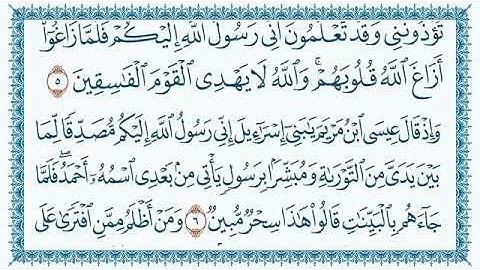 تُؤْذُونَنِي وَقَد تَّعْلَمُونَ أَنِّي رَسُولُ اللَّهِ إِلَيْكُمْ فَلَمَّا زَاغُوٓا۟
أَزَاغَ اللَّهُ قُلُوبَهُمْ ۚ وَاللَّهُ لَا يَهْدِي الْقَوْمَ الْفَاسِقِينَ ٥
وَإِذْ قَالَ عِيسَى ابْنُ مَرْيَمَ يَٰبَنِىٓ إِسْرَٰٓءِيلَ إِنِّي رَسُولُ اللَّهِ إِلَيْكُم مُّصَدِّقًا لِّمَا
بَيْنَ يَدَىَّ مِنَ التَّوْرَىٰةِ وَمُبَشِّرًۢا بِرَسُولٍ يَأْتِي مِنۢ بَعْدِي اسْمُهُۥٓ أَحْمَدُ ۖ فَلَمَّا
جَآءَهُم بِالْبَيِّنَٰتِ قَالُوا۟ هَٰذَا سِحْرٌ مُّبِينٌ ٦ وَمَنْ أَظْلَمُ مِمَّنِ افْتَرَىٰ عَلَى